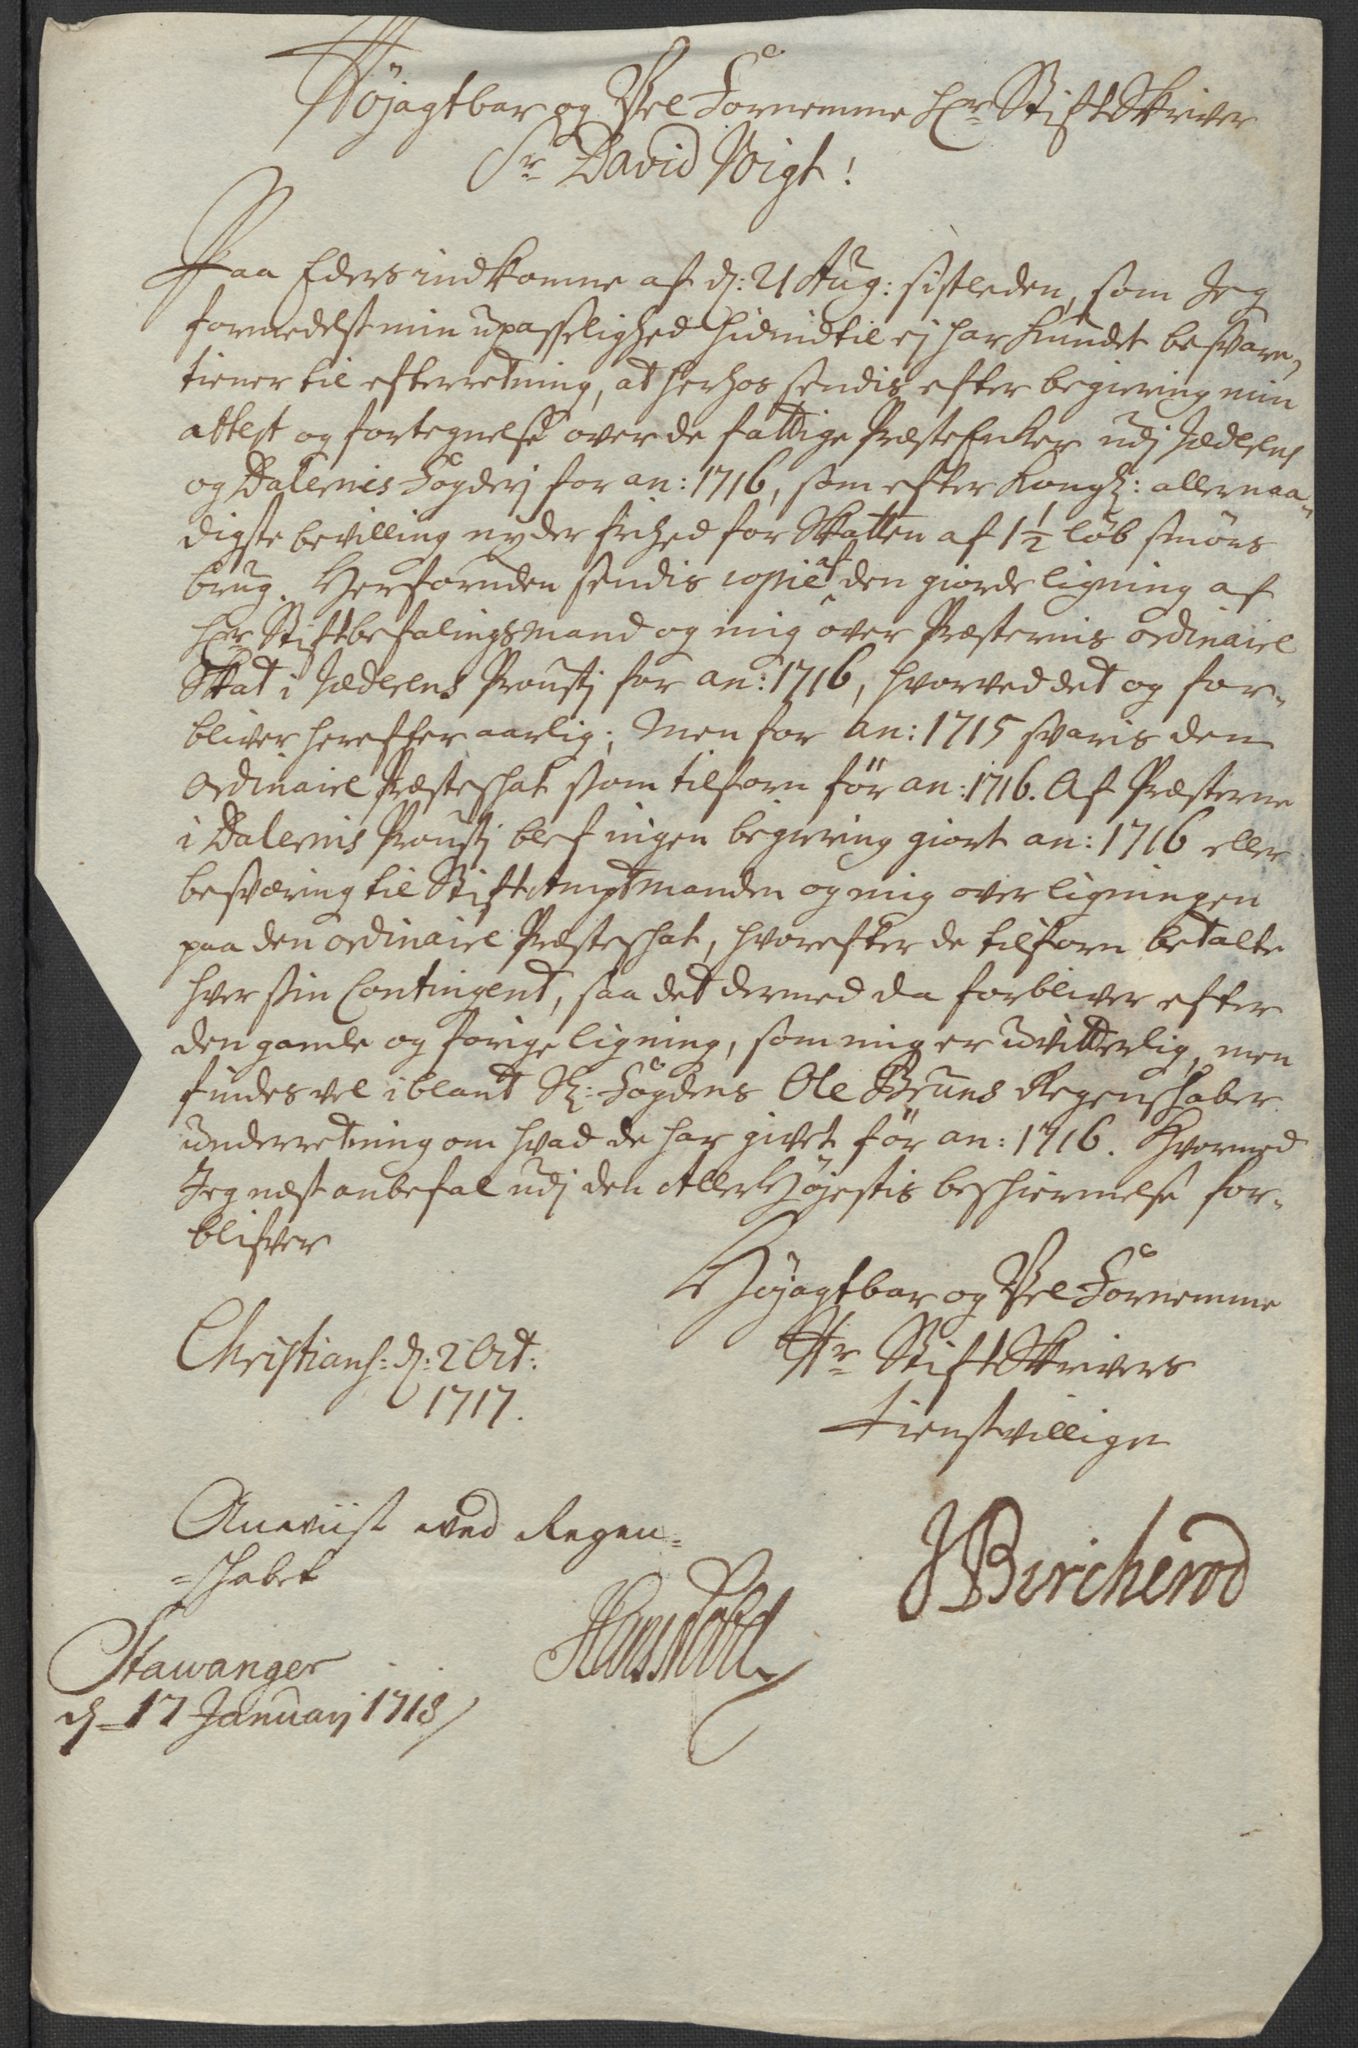 Højagtbar og Vel Fornemme Hr Stift Skriver
Sr David Voigt!
Paa Eders indkomne af d: 21 Aug: sistleden, som Jeg
formedelst min upasselighed hidindtil ej har kundet besvare,
tiener til efterretning, at herhos sendis efter begiering min
attest og fortegnelse over de fattige Præste Enker udj Jæderens
og Dalernis Fogderj for an: 1716, som efter Kongl: allernaa-
digste bevilling nyder frihed for Skatten af 1½ løb smörs
brug. Herforuden sendis copie af den giorde ligning af
Hr Stiftbefalingsmand og mig over Præsternis ordinaire
Skat i Jæderens Proustj for an: 1716, hvorved det og for-
bliver herefter aarlig; Men for an: 1715 svaris den
ordinaire Præsteskat som tilforn för an: 1716. Af Præsterne
i Dalernis Proustj blef ingen begiering giort an: 1716 eller
besværing til Stiftamptmanden og mig over ligningen
paa den ordinaire Præsteskat, hvorefter de tilforn betalte
hver sin Contingent, saa det dermed da forbliver efter
den gamle og forige ligning, som mig er uvitterlig, men
findes vel iblant Sl: Fogdens Ole Bruns Regenskaber
underretning om hvad de har givet för an: 1716. Hvormed
Jeg næst anbefal udj den Aller Højestis beskiermelse for-
blifver
Højagtbar og Vel Fornemme
Hr Stift Skrivers
tienstvillige
Christians: d: 2 Oct:
1717.
JBircherod
Anviist ved Regen-
-skabet
Stawanger
d 17 Januarj 1718